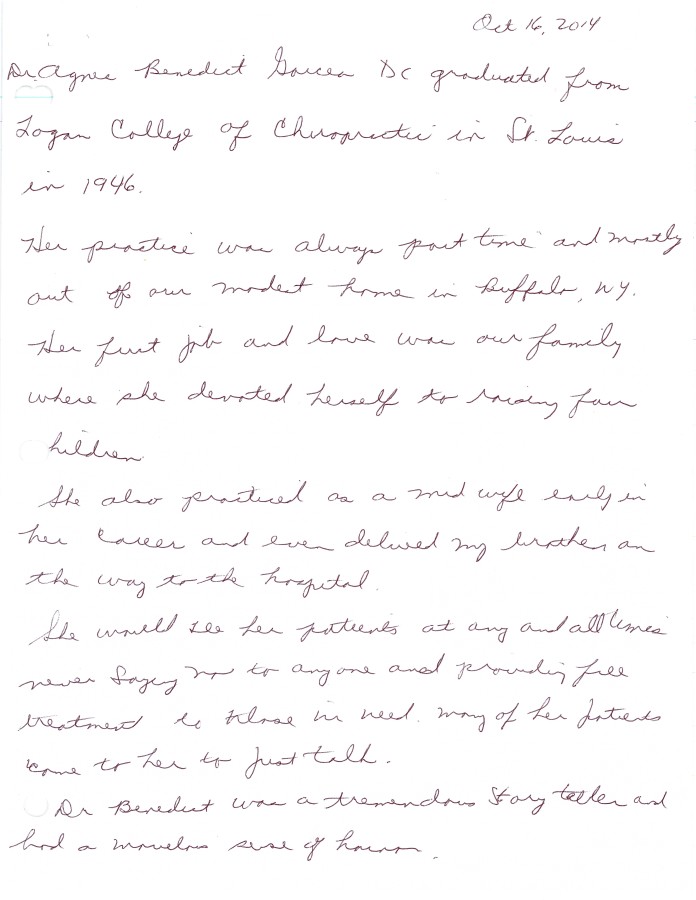 Oct 16, 2014
Dr. Agnes Benedict DC graduated from
Logan College of Chiropractic in St. Louis
in 1946.
Her practice was always part time and mostly
out of our modest home in Buffalo, NY.
Her first job and love was our family
where she devoted herself to raising four
hildren
She also practiced as a mid wife early in
her career and even delivred my brother on
the way to the hospital.
She would see her patients at any and all times
never saying no to anyone and providing free
treatment to those in need. Many of her patients
come to her to just talk.
Dr Benedict was a tremendous story teller and
had a marvelous sense of humor.